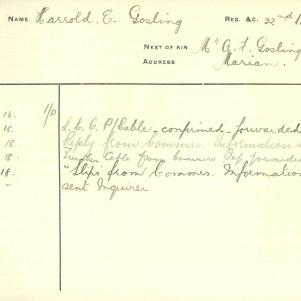 NAME Harrold. E. Gosling REG. &C. 32nd
NEXT OF KIN Mr A. F. Gosling
ADDRESS Marian.
18. 1/P
18. S. C. C. P/Cable - confirmed - forwarded
18 Reply from Commrs. Information
18 Further Cable from Commrs forwarded
18 "Slips from Commrs. Information
- sent Inquirer